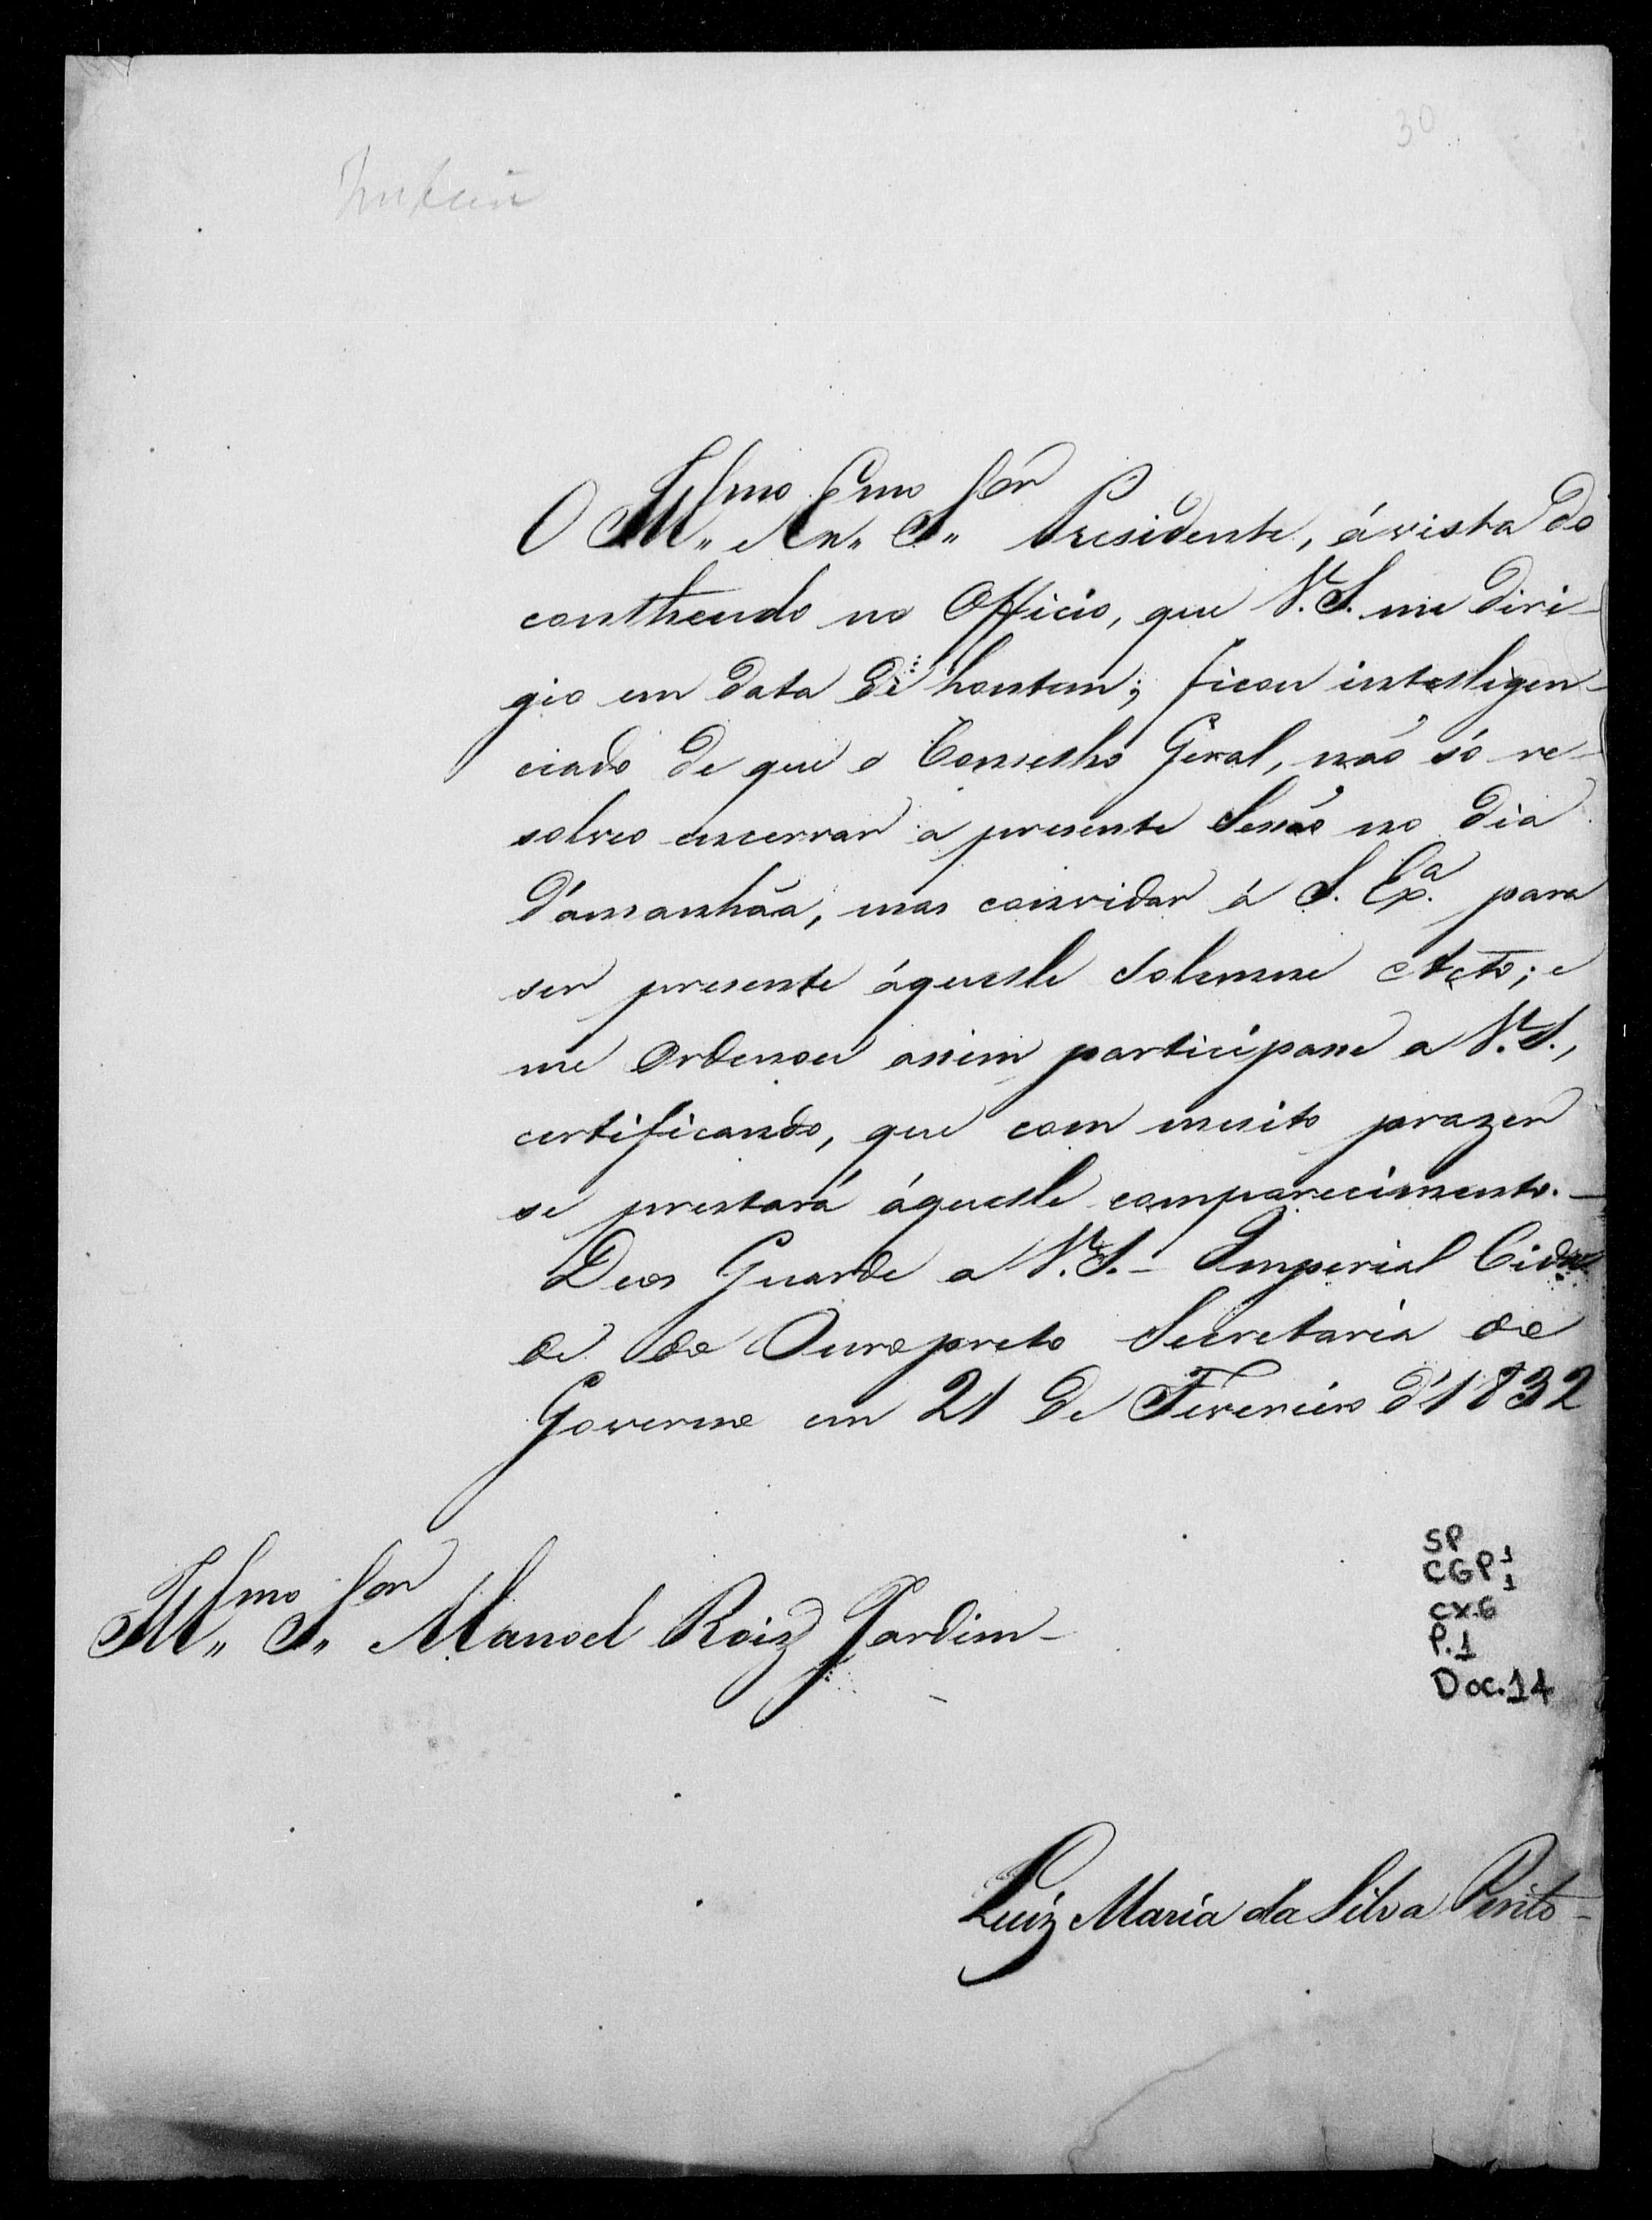 30
O Ill.mo Ex.mo S.or Presidente, á vista do
contheudo no Officio, que V. S. me diri-
gio em data de hontem; ficou intelligen-
ciado de que o Conselho Geral, não só re-
solveo encerrar a presente Sessão no dia
d'ámanhãa, mas convidar á S. Ex.a para
ser presente áquelle Solemne Acto; e
me Ordenou assim participasse a V. S.,
certificando, que com muito prazer
se prestará áquelle comparecimento. —
Deos Guarde a V. S. - Imperial Cida
de do Ouropreto Secretaria do
Governo em 21 de Fevereiro d'1832
SP
CGP 1
1
cx.6
P.1
Doc.14
Ill.mo S.or Manoel Roiz Jardim -
Luiz Maria da Silva Pinto -